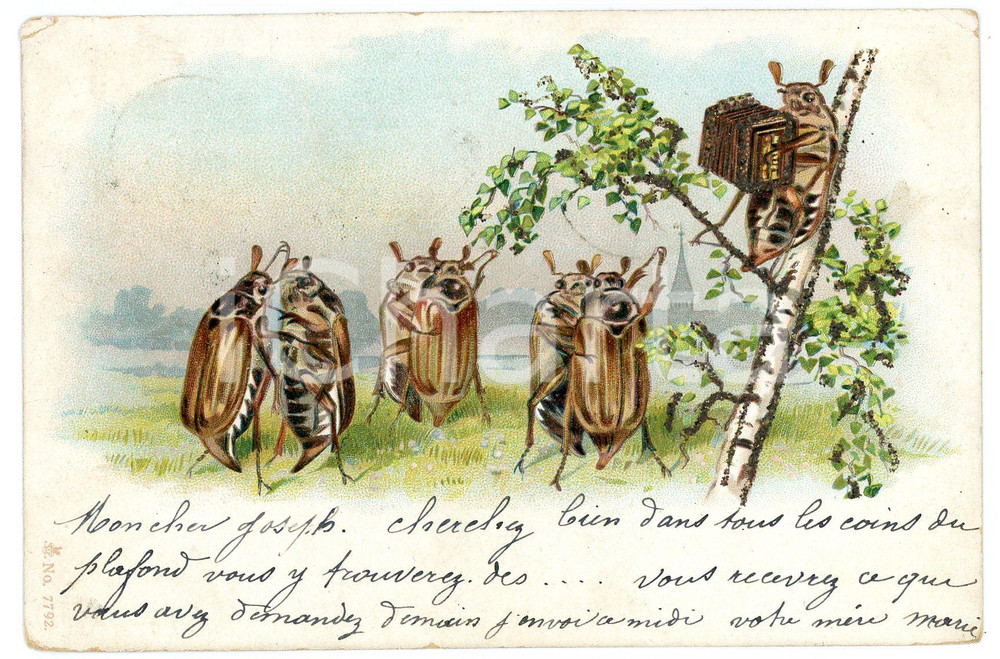 Mon cher Joseph. cherchez bien dans tous les coins du
plafond vous y trouverez des .... vous recevrez ce que
vous avez demandez demain j envoi a midi votre mére marie
No. 7792.